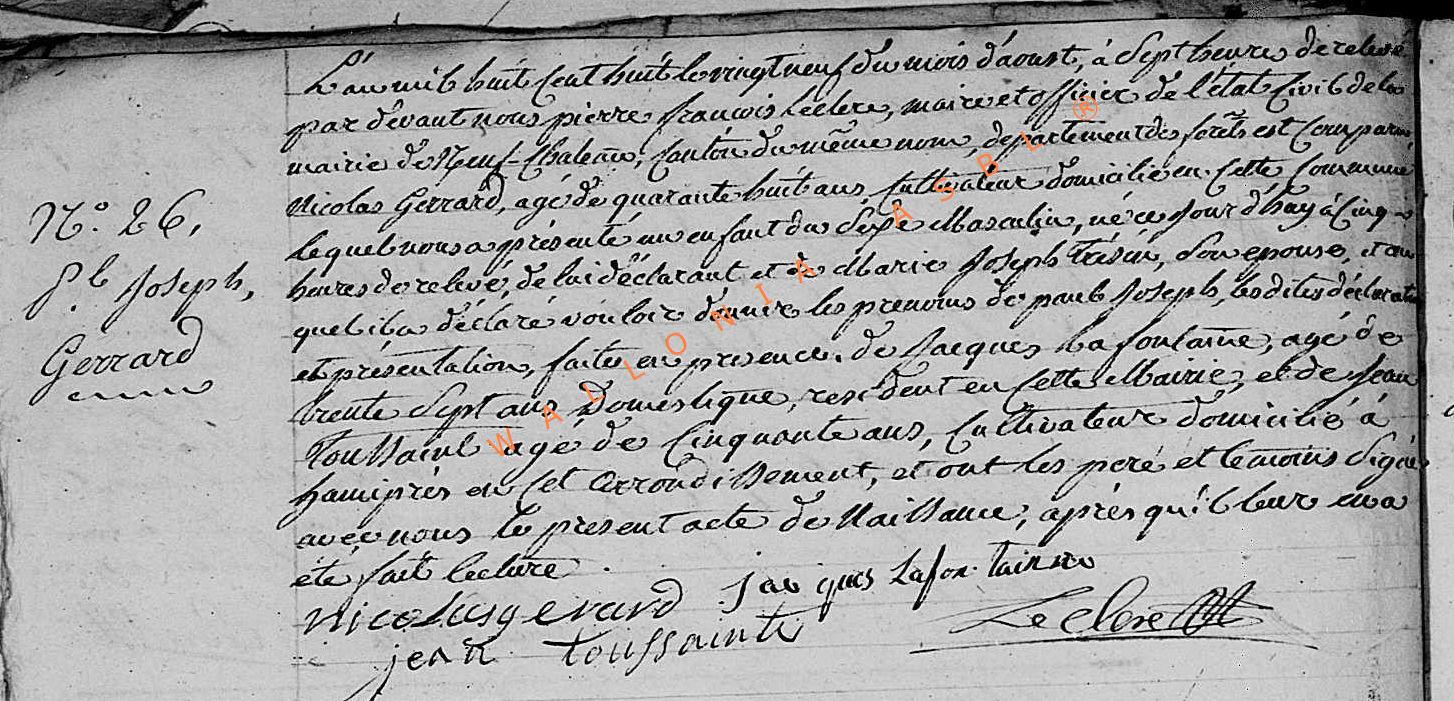 N.o 26,
P.l Joseph,
Gerrard
L'an mil huit cent huit le vingt neuf du mois d'aoust, à Sept heures de relevé
par dévant nous pierre françois Leclerc, maire et officier de l'état Civil de la
mairie de Neuf-Chateau, Canton du même nom, département des forêts est Comparu
Nicolas Gerrard, agé de quarante huit ans, Cultivateur domicilié en Cette Commune
lequel nous a présenté un enfant du Sexe Masculin, né ce Jour d'huy à Cinq
heures de relevé, de lui déclarant et de Marie Joseph, Son epouse, et au
quel il a déclaré vouloir donner les prenoms de paul Joseph, les dites déclaration
et présentation, faites en presence de Jacques Lafontaine, agé de
trente Sept ans, Domestique, resident en Cette Mairie, et de Jean
Toussaint agé de Cinquante ans, Cultivateur domicilié à
hamiprés en Cet Arrondissement, et ont les peré et temoins Signé
avec nous le present acte de Naissance, aprés qu'il leur en a
été fait lecture.
nicolas gerard jacques Lafontainne
jean toussainte Leclere
WALLONIA ASBL ®